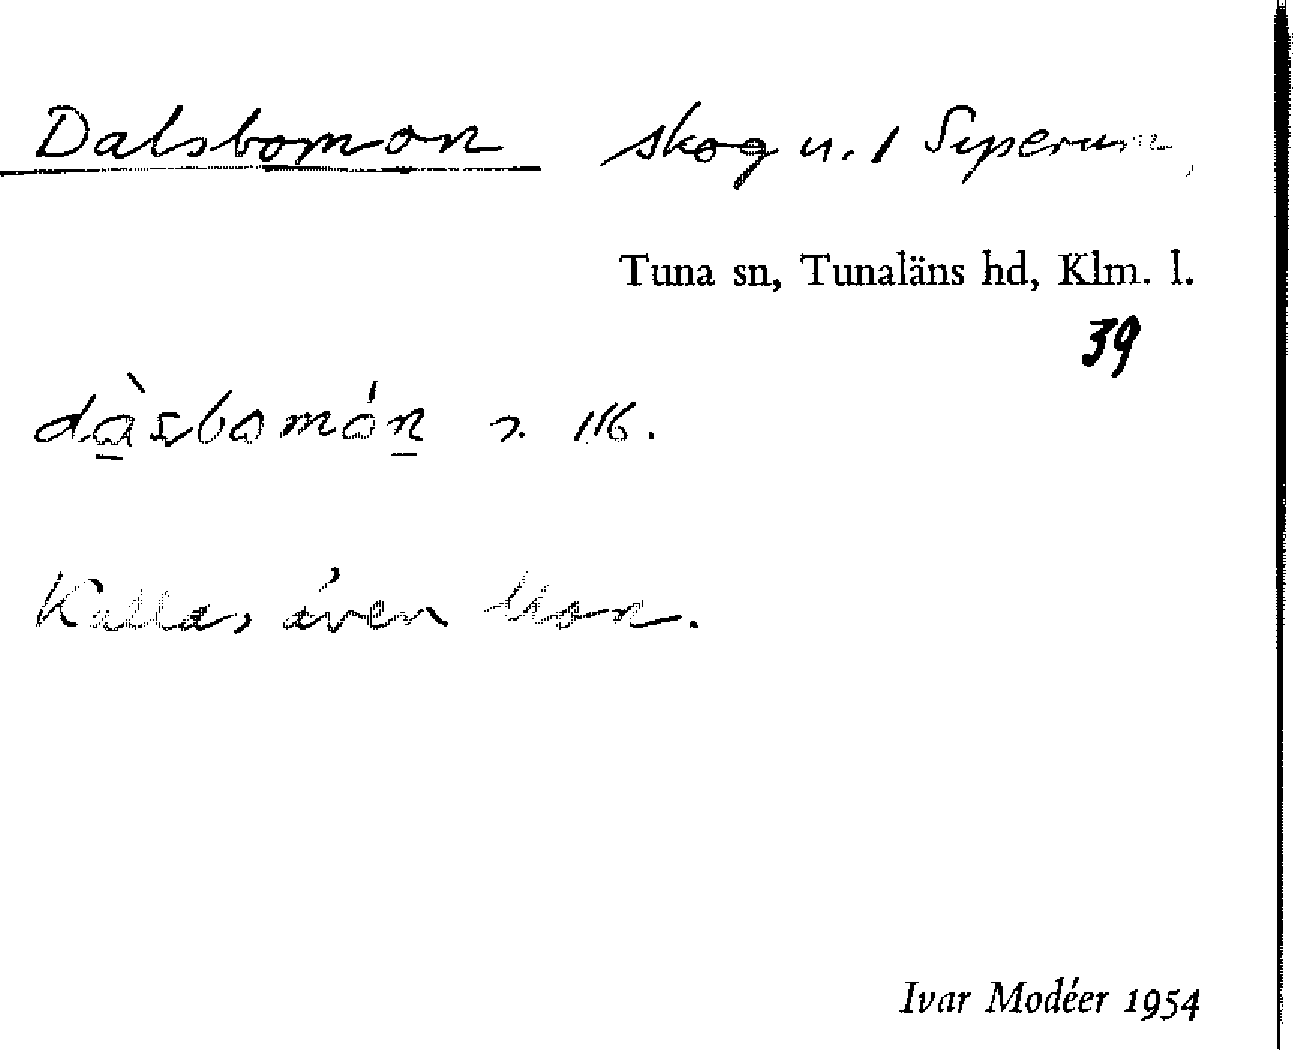 Dalsbomon skog u. 1 Seperum,
Tuna sn, Tunaläns hd, Klm. l.
39
dàsbomón
Kallas även Mon.
Ivar Modéer 1954